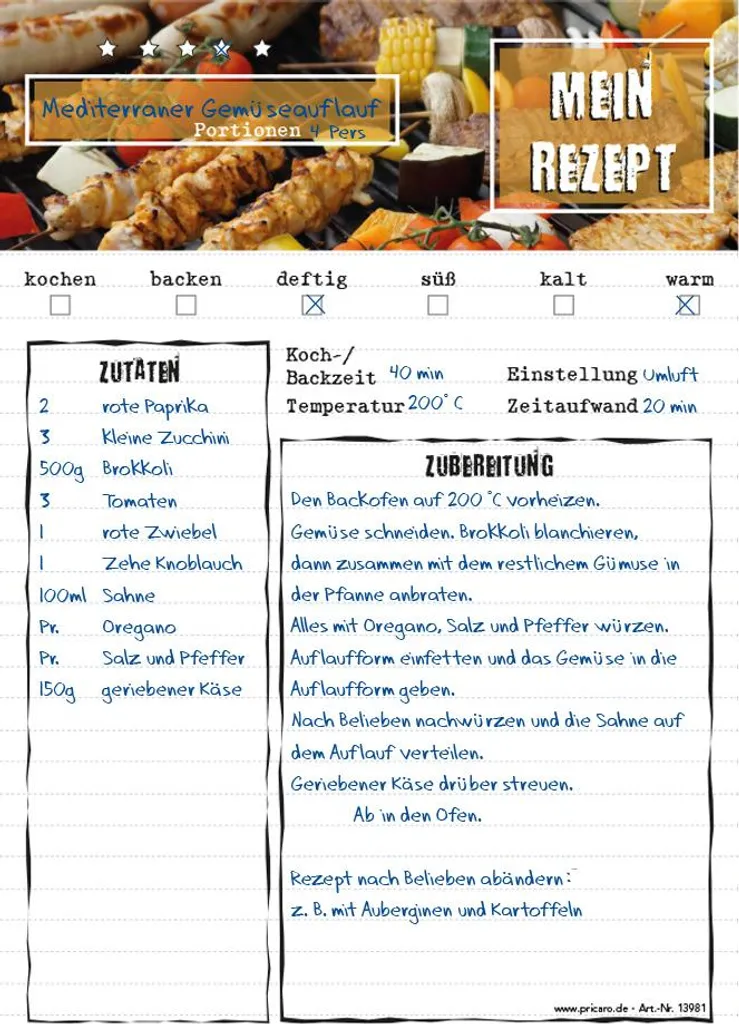 Mediterraner Gemüseauflauf
Portionen 4 Pers
MEIN
REZEPT
kochen backen deftig süß kalt warm
ZUTATEN
2 rote Paprika
3 kleine Zucchini
500g Brokkoli
3 Tomaten
1 rote Zwiebel
1 Zehe Knoblauch
100ml Sahne
Pr. Oregano
Pr. Salz und Pfeffer
150g geriebener Käse
Koch-/
Backzeit 40 min
Einstellung Umluft
Temperatur 200° C
Zeitaufwand 20 min
ZUBEREITUNG
Den Backofen auf 200 °C vorheizen.
Gemüse schneiden. Brokkoli blanchieren,
dann zusammen mit dem restlichem Gümuse in
der Pfanne anbraten.
Alles mit Oregano, Salz und Pfeffer würzen.
Auflaufform einfetten und das Gemüse in die
Auflaufform geben.
Nach Belieben nachwürzen und die Sahne auf
dem Auflauf verteilen.
Geriebener Käse drüber streuen.
Ab in den Ofen.
Rezept nach Belieben abändern:
z. B. mit Auberginen und Kartoffeln
www.pricaro.de - Art.-Nr. 13981